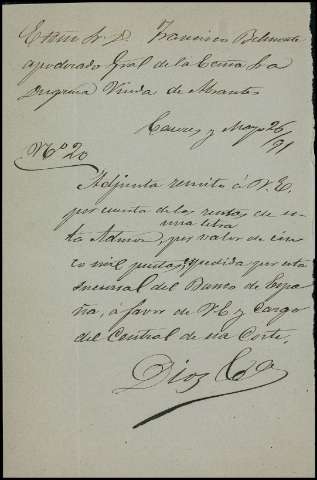 Exmo Sr. D. Francisco Belmonte
apoderado Gral de la Exma Sra
Duquesa Viuda de Abrantes
Caceres y Mayo 26/91
Nº 20
Adjunta remito á V.E.
por cuenta de las rentas de es-
una letra
ta Admon, por valor de cin-
co mil pesetas, expedida por esta
Sucursal del Banco de Espa-
ña, á favor de VE y cargo
del Central de esa Corte.
Dios &a